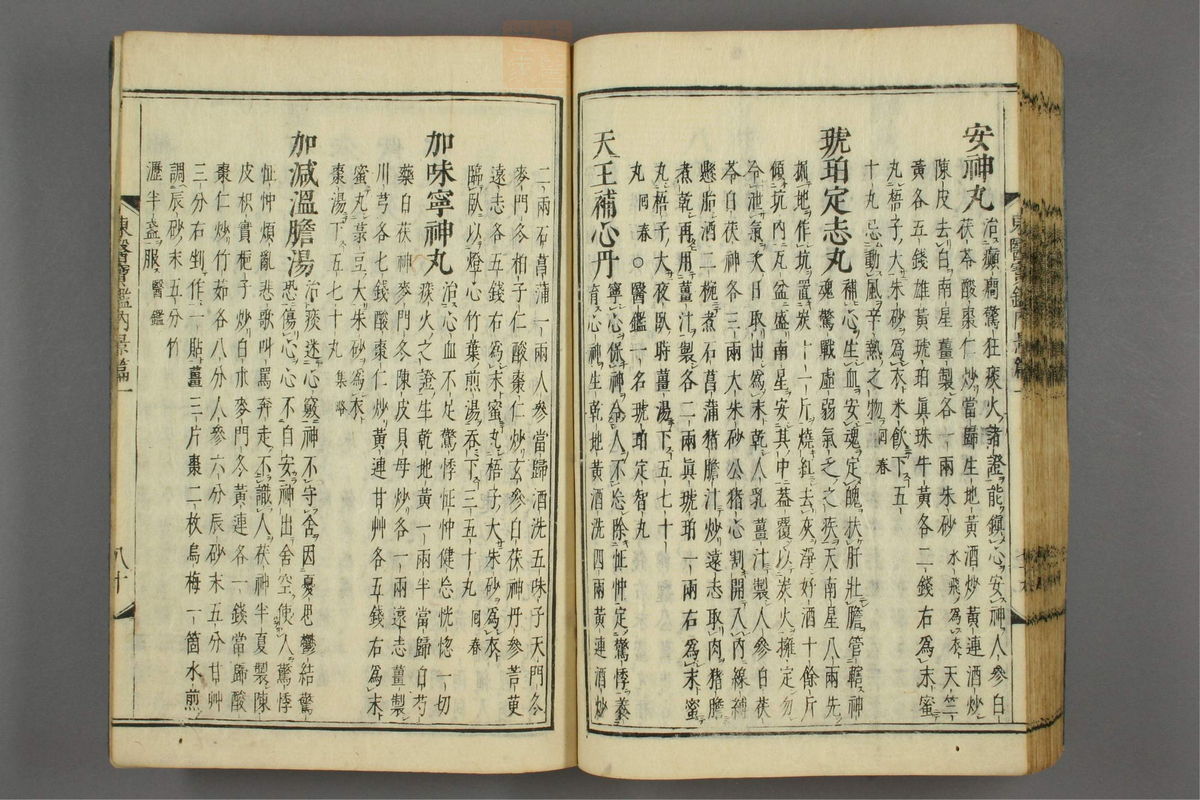 安神丸 治癲癇驚狂痰火諸證能鎭心安神人參白
茯苓酸棗仁炒當歸生地黃酒炒黃連酒炒
陳皮去白南星薑製各一兩朱砂水飛爲衣天竺
黃各五錢雄黃琥珀眞珠牛黃各二錢右爲末蜜
丸梧子大朱砂爲衣米飮下五
十丸忌動風辛熱之物回春
琥珀定志丸 補心生血安魂定魄扶肝壯膽管轄神
魂驚戰虛弱氣乏之疾天南星八兩先
掘地作坑置炭十一斤燒紅去灰淨好酒十餘斤
傾坑內瓦盆盛南星安其中盖覆以炭火擁定勿
令泄氣次日取出爲末乾人乳薑汁製人參白茯
苓白茯神各三兩大朱砂公猪心割開入內線縛
懸胎酒二椀煮石菖蒲猪膽汁炒遠志取肉猪膽
煮乾再用薑汁製各二兩眞琥珀一兩右爲末蜜
丸梧子大夜臥時薑湯下五七十
丸回春○醫鑑一名琥珀定智丸
天王補心丹 寧心保神令人不忘除怔忡定驚悸養
育心神生乾地黃酒洗四兩黃連酒炒
二兩石菖蒲一兩人參當歸酒洗五味子天門冬
麥門冬柏子仁酸棗仁炒玄參白茯神丹參苦莄
遠志各五錢右爲末蜜丸梧子大朱砂爲衣
臨臥以燈心竹葉煎湯吞下三五十丸回春
加味寧神丸 治心血不足驚悸怔忡健忘恍惚一切
痰火之證生乾地黃一兩半當歸白芍
藥白茯神麥門冬陳皮貝母炒各一兩遠志薑製
川芎各七錢酸棗仁炒黃連甘艸各五錢右爲末
蜜丸菉豆大朱砂爲衣
棗湯下五七十丸集略
加減溫膽湯 治痰迷心竅神不守舍因憂思鬱結驚
恐傷心心不自安神出舍空使人驚悸
怔忡煩亂悲歌叫罵奔走不識人茯神半夏製陳
皮枳實梔子炒白朮麥門冬黃連各一錢當歸酸
棗仁炒竹茹各八分人參六分辰砂末五分甘艸
三分右剉作一貼薑三片棗二枚烏梅一箇水煎
調辰砂末五分竹
瀝半盞服醫鑑
東醫寶鑑內景篇一
八十